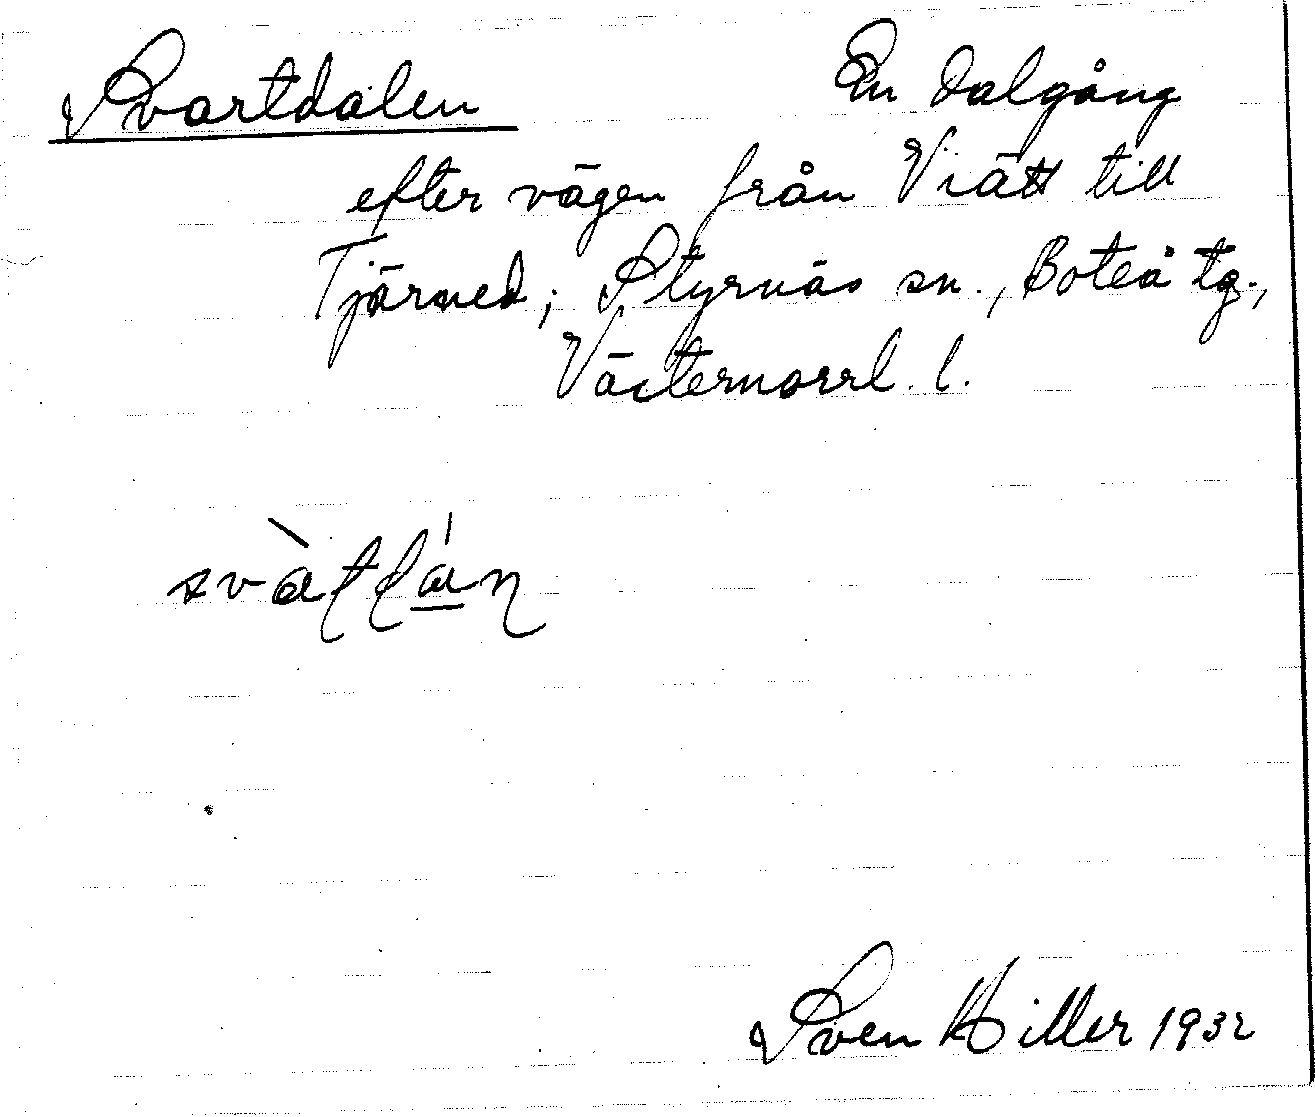 Svartdalen En dalgång
efter vägen från Viätt till
Tjärned; Styrnäs sn., Boteå tg.,
Västernorrl. l.
Sven Hiller 1932